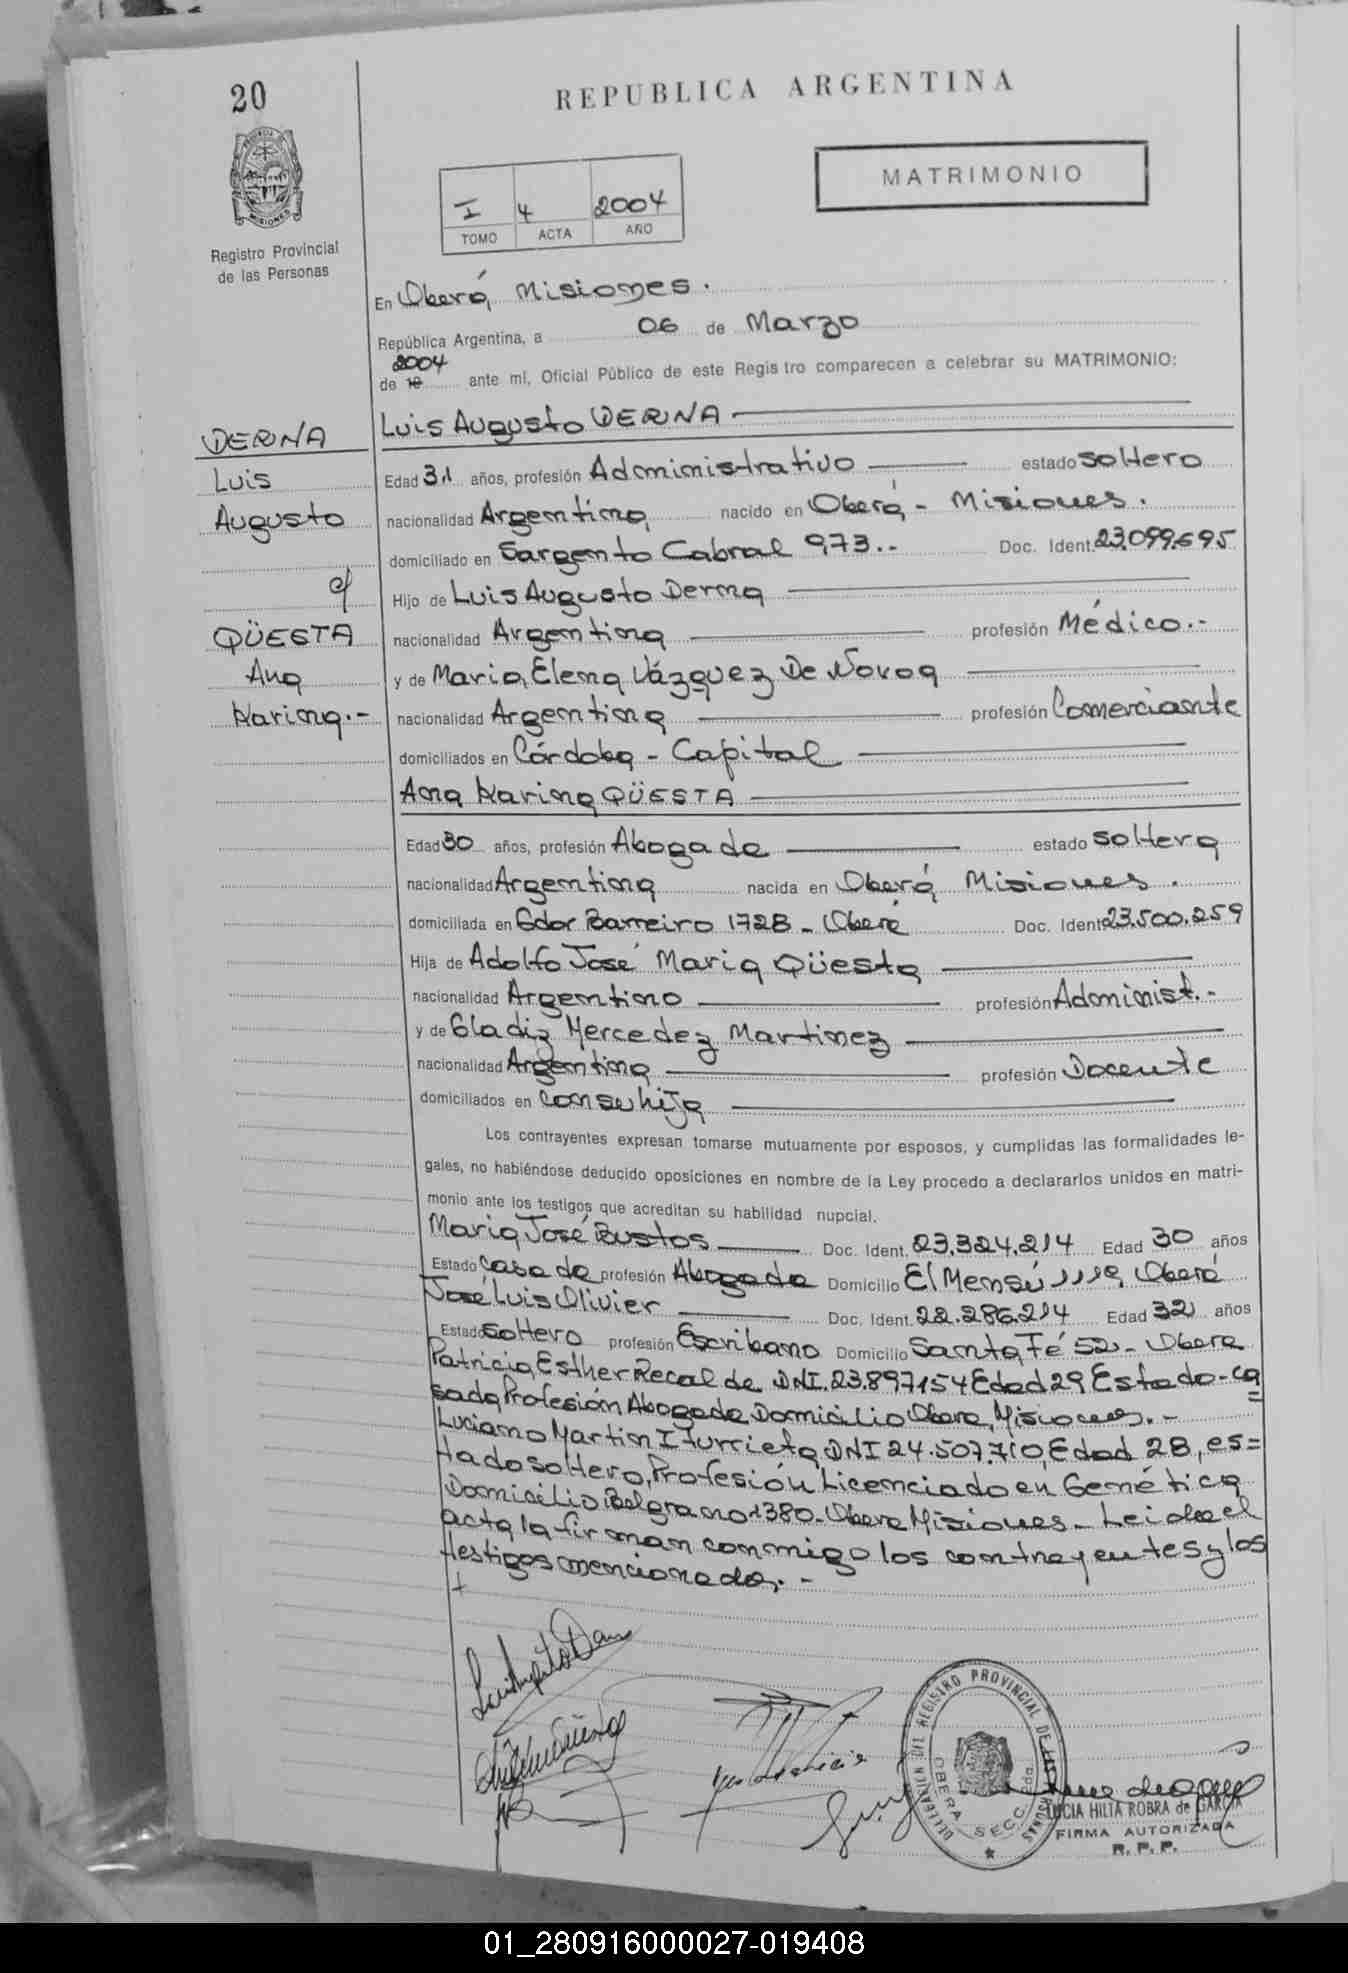 20
REPUBLICA ARGENTINA
MATRIMONIO
I 4 2004
TOMO ACTA AÑO
Registro Provincial
de las Personas
En Oberá, Misiones.
República Argentina, a 06 de Marzo
2004
de 19 ante mí, Oficial Público de este Registro comparecen a celebrar su MATRIMONIO:
DERNA
Luis
Augusto
c/
QÜESTA
Ana
Karina.-
Luis Augusto DERNA
Edad 31 años, profesión Administrativo estado soltero
nacionalidad Argentina nacido en Oberá - Misiones.
domiciliado en Sargento Cabral 973.- Doc. Ident. 23.099.695
Hijo de Luis Augusto Derna
nacionalidad Argentina profesión Médico.-
y de Maria, Elena Vázquez De Novoa
nacionalidad Argentina profesión Comerciante
domiciliados en Córdoba - Capital
Ana Karina QÜESTA
Edad 30 años, profesión Abogada estado soltera
nacionalidad Argentina nacida en Oberá, Misiones.
domiciliada en Gdor Barreiro 1728 - Oberá Doc. Ident 23.500.259
Hija de Adolfo José Maria Qüesta
nacionalidad Argentino profesión Administ.-
y de Gladiz Mercedez Martinez
nacionalidad Argentina profesión Docente
domiciliados en con su hija
Los contrayentes expresan tomarse mutuamente por esposos, y cumplidas las formalidades le-
gales, no habiéndose deducido oposiciones en nombre de la Ley procedo a declararlos unidos en matri-
monio ante los testigos que acreditan su habilidad nupcial.
Maria José Bustos Doc. Ident. 23.324.214 Edad 30 años
Estado Casada profesión Abogada Domicilio El Mensú 1119, Oberá
José Luis Olivier Doc. Ident. 22.286.214 Edad 32 años
Estado Soltero profesión Escribano Domicilio Santa Fé 52 - Oberá
Patricia, Esther Recalde DNI. 23.897154 Edad 29 Estado - ca
sada, Profesión Abogada, Domicilio Obera, Misiones.-
Luciano Martin Iturrieta, DNI 24.507.710, Edad 28, es=
tado soltero, Profesión Licenciado en Genética
Domicilio Belgrano 1380 - Obera Misiones - Leida el
acta la firman conmigo los contrayentes y los
testigos mencionado.-
DELEGACION DEL REGISTRO PROVINCIAL DE LAS PERSONAS
OBERA SECC. 2da.
LUCIA HILTA ROBRA de GARCIA
FIRMA AUTORIZADA
R. P. P.
01_280916000027-019408